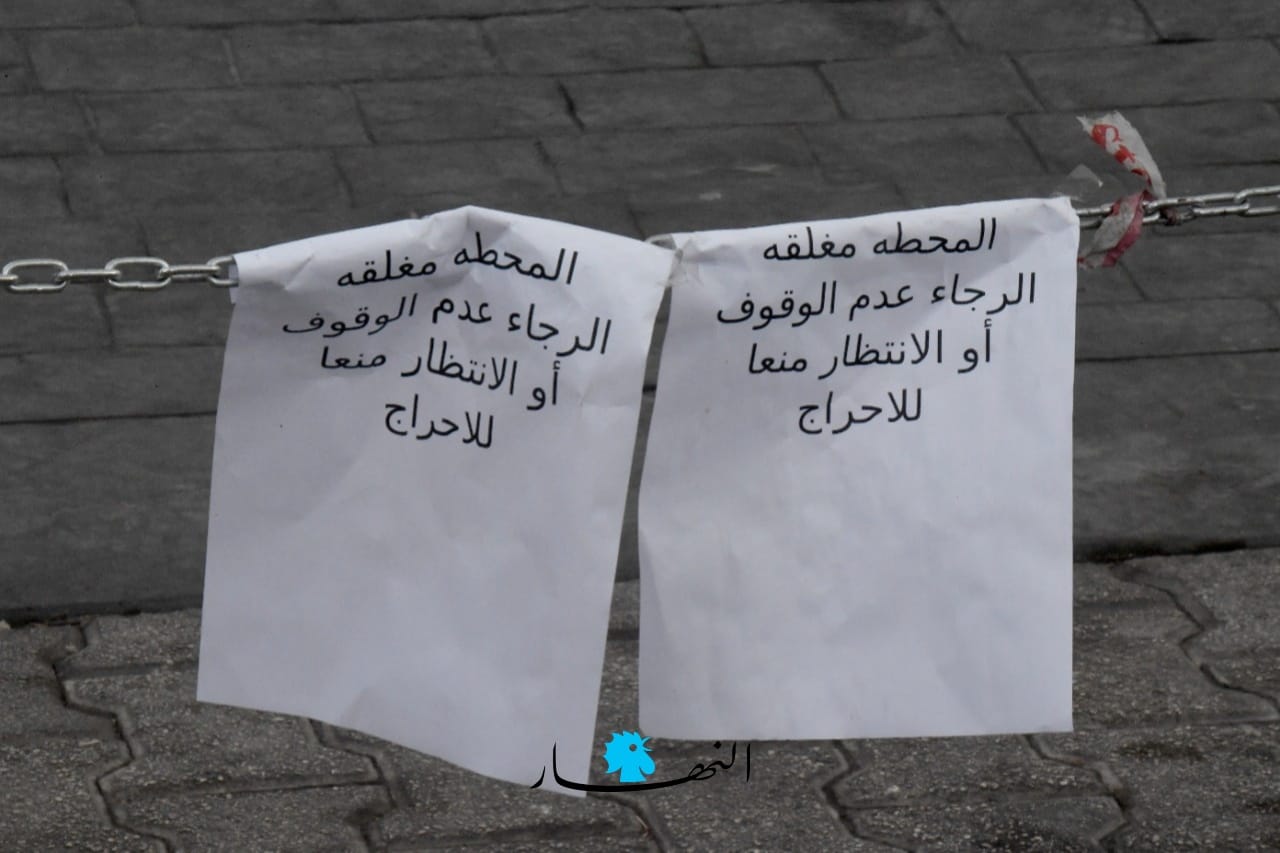 المحطه مغلقه
الرجاء عدم الوقوف
أو الانتظار منعا
للاحراج
المحطه مغلقه
الرجاء عدم الوقوف
أو الانتظار منعا
للاحراج
النهار